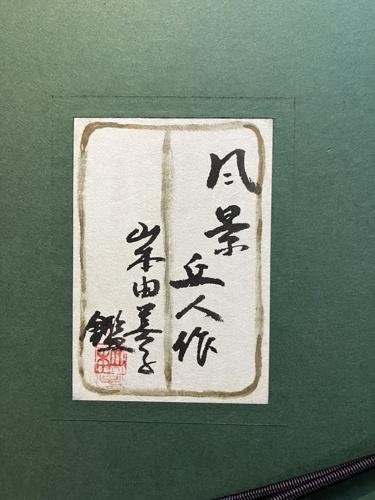 風景
丘人作
山本由美子
鑑